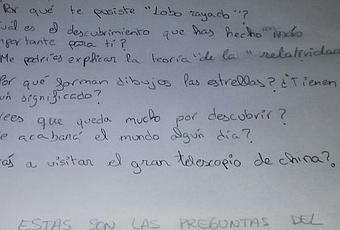 Por qué te pusiste "Lobo rayado"?
uál es el descubrimiento que has hecho más
mportante para ti?
Me podrías explicar la teoría "de la "relatividad
Por qué forman dibujos las estrellas? ¿Tienen
ún significado?
rees que queda mucho por descubrir?
e acabará el mundo algún día?
ás a visitar el gran telescopio de china?
ESTAS SON LAS PREGUNTAS DEL